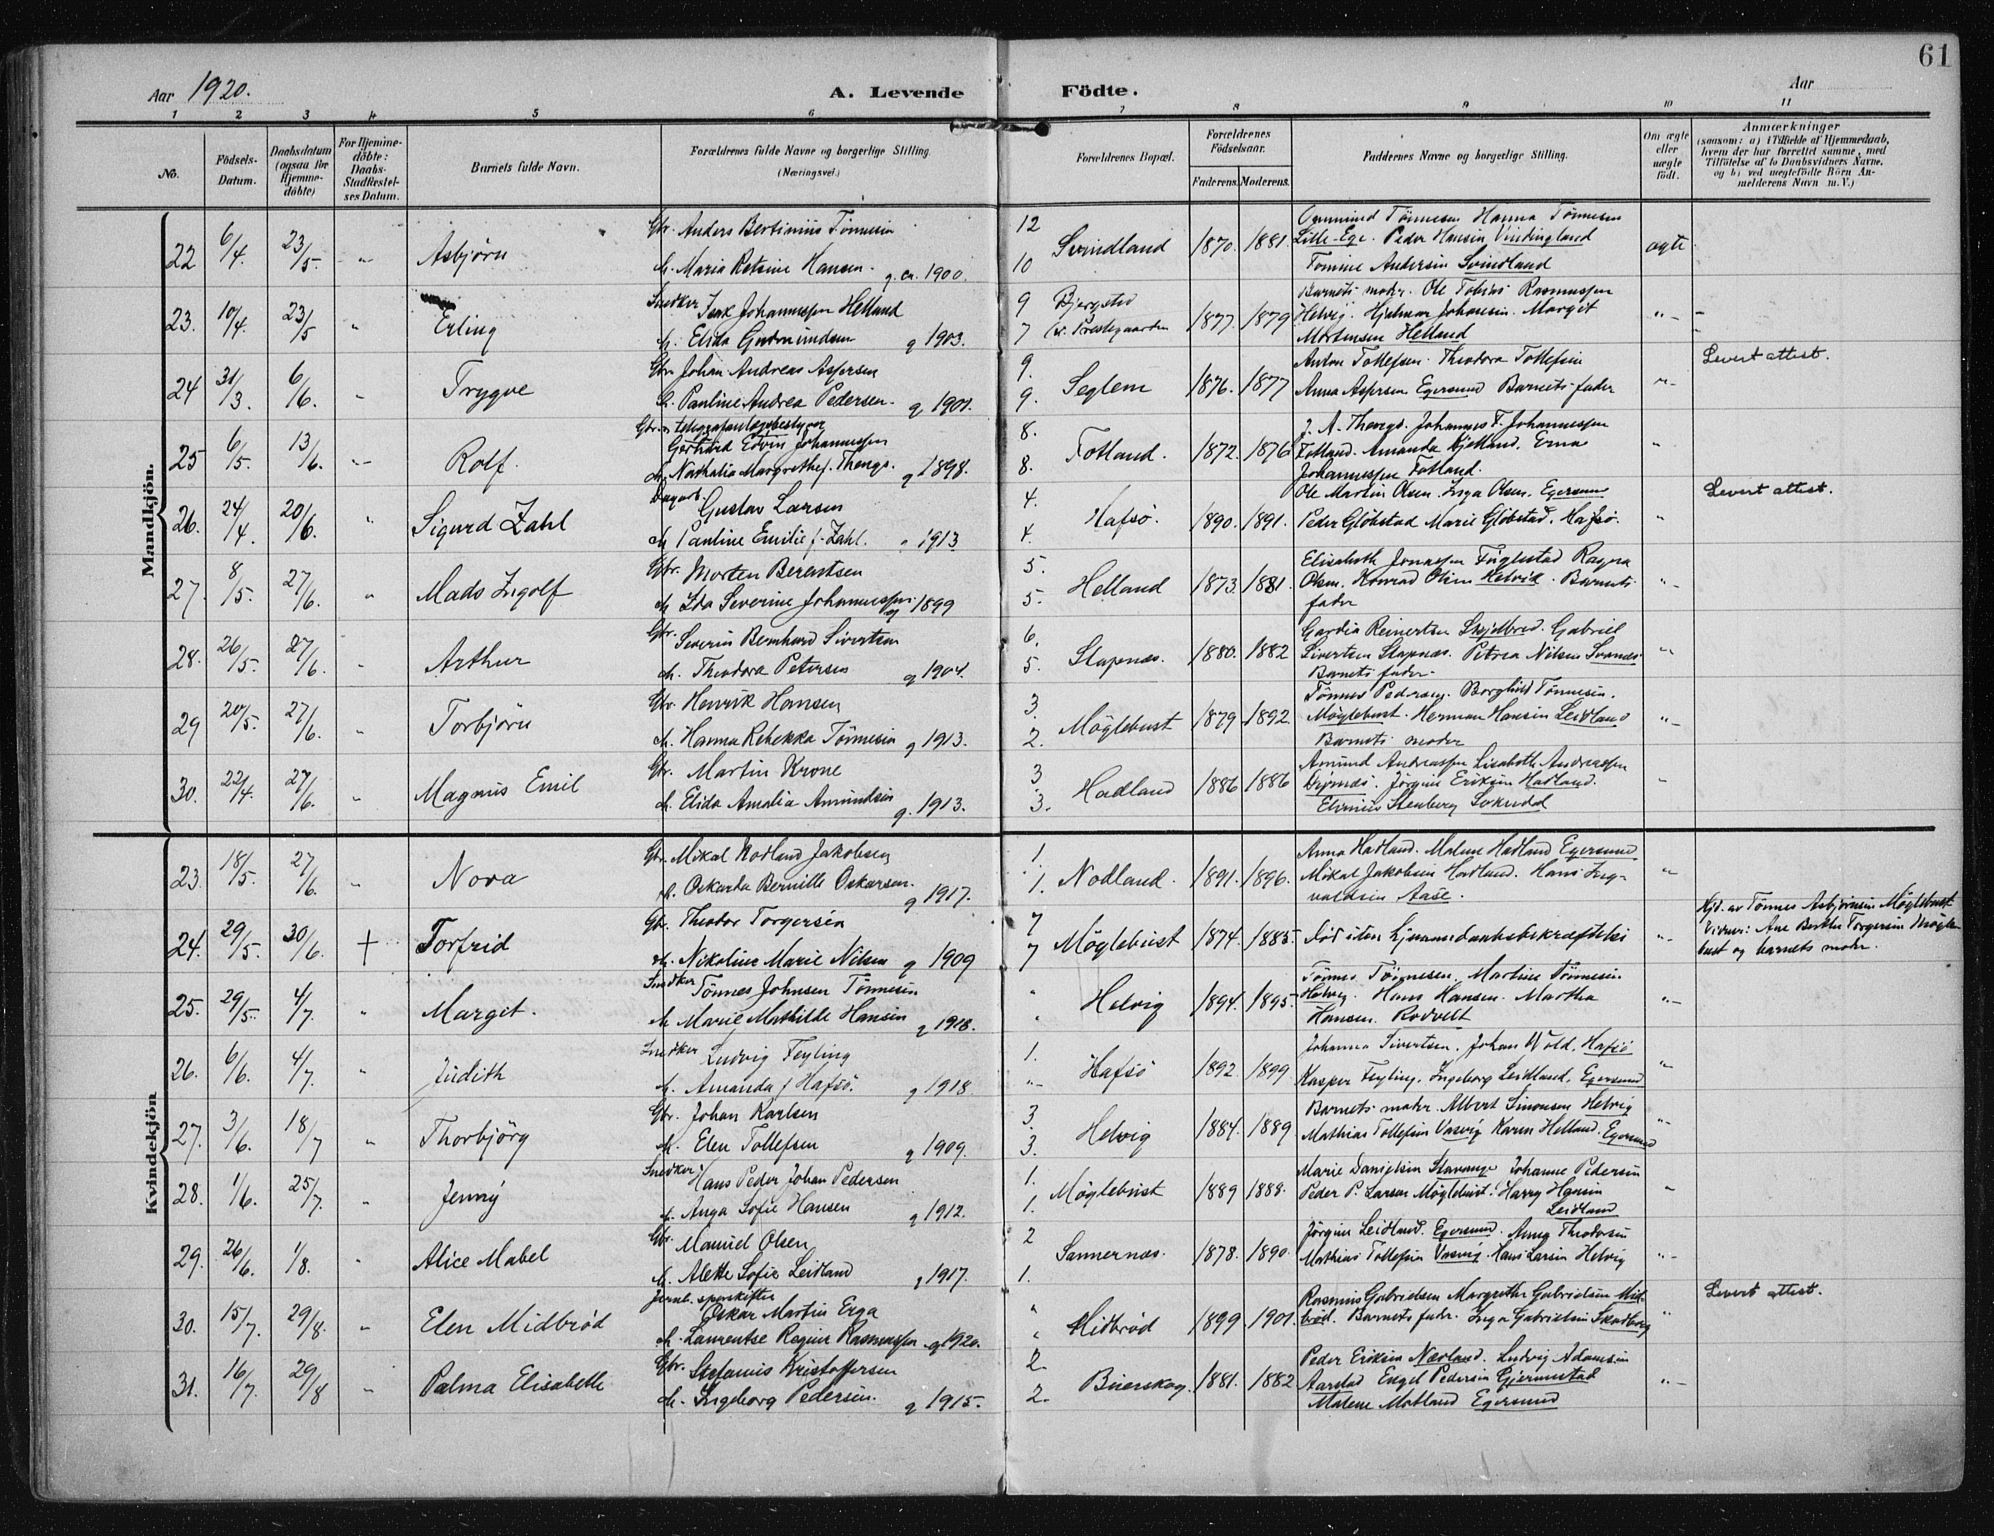 61
Aar 1920. A. Levende Födte. Aar
1 2 3 4 5 6 7 8 9 10 11
No. Födsels-Datum. Daabsdatum (ogsaa for Hjemme-döbte) For Hjemme-döbte: Daabs-Stadfæstel-ses Datum. Barnets fulde Navn. Forældrenes fulde Navne og borgerlige Stilling. (Næringsvei.) Forældrenes Bopæl. Forældrenes Födselsaar. Faderens. Moderens. Faddernes Navne og borgerlige Stilling. Om ægte eller uægte födt. Anmærkninger (saasom: a) i Tilfælde af Hjemmedaab, hvem der har forrettet samme, med Tilföielse af to Daabsvidners Navne. og b) ved uægtefödte Börn An-melderens Navn m. V.)
Mandkjön.
Gbr. Anders Bertinius Tönnesen 12 Ommund Tönnesen Hanna Tönnesen
22 6/4. 23/5. " Asbjørn Svindland 1870. 1881. Lille-Ege. Peder Hansen ægte
h. Maria Hansen. g. ca. 1900. 10 Tomine Andersen Svindland
Snedker Isak Johannessen Helland 9 Bjergsted Barnets moder. Ole Tobias Rasmussen
23. 10/4. 23/5 " Erling 1877. 1879 Helvig. Hjalmar Johansen. Margit "
h. Elida Gudmundsen g 1903. 7 Mortensen Helland
Gbr. Johan Andreas Aspersen 9. Anton Tollefsen. Theodora Tollefsen Levert attest.
24 31/3. 6/6. " Trygve Seglem 1876. 1877 Anna Aspersen Egersund Barnets fader "
h. Pauline Andrea Pedersen. g 1901. 9.
Gbr. Gerhard Edvin Johannessen 8. J. A. Thengs. Johannes F. Johannessen
25 6/5. 13/6. " Rolf. Fotland. 1872. 1876 Fotland. Amanda Kjelland. Erna "
h. Nathalia Margrethe f. Thengs. g 1898. 8. Johannessen Fotland.
Gustav Larsen 4. Ole Martin Olsen. Inga Olsen. Egersund Levert attest.
26. 24/4. 20/6. " Sigurd Zahl Hafsø. 1890. 1891. Peder Glöbstad Marie Glöbstad. Hafsø. "
h. Pauline Emilie f. Zahl. " 1913 4.
Gbr. Morten Berentsen 5. Elisabeth Jonassen Fuglestad Ragna
27. 8/5. 27/6. " Mads Ingolf Helland 1873. 1881. Olsen. Konrad Olsen Helvik. Barnets "
h. Ida Severine Johannessen g 1899 5. fader
Gbr. Severin Bernhard Sivertsen 6. Reinertsen Skjelbred. Gabriel
28. 26/5. 27/6. " Arthur Stapnæs. 1880. 1882 Sivertsen Stapnæs. Petrea Nilsen Svanæs "
h. Theodora Petersen g 1904. 5. Barnets fader.
Gbr. Henrik Hansen 3. Tönnes Pedersen. Borghild Tönnesen.
29 20/5. 27/6. " Torbjørn Möglebust 1879. 1892. Möglebust. Herman Hansen Leidland "
h. Hanna Rebekka Tönnesen g 1913. 2. Barnets moder
Gbr. Martin Krone 3 Amund Andreassen Lisabeth Andreassen
30. 22/4. 27/6. " Magnus Emil Hadland 1886 1886 Jörgine Eriksen Hadland. "
h. Elida Amalia Amundsen g. 1913. 3. Stenberg
Kvindekjön
Gbr. Mikal Nodland Jakobsen 1. Anna Hadland. Malene Hadland Egersund
23. 18/5. 27/6. " Nora Nodland. 1891. 1896. Mikal Jakobsen Hadland. Hans Ing- "
h. Oskarda Bernille Oskarsen. g 1917. 1. valdsen Aase.
Gbr. Theodor Torgersen 7 Hjd. av Tönnes Asbjörnsen Möglebust
24. 29/5. 30/6. + Torfrid Möglebust 1874. 1885. död uten hjemmedaabsbekræftelse " Vidner: Ane Berthe Torgersen Mögle-
h. Nikoline Marie Nilsen g 1909 7 bust og barnets moder.
Snedker Tönnes Johnsen Tönnesen " Tönnes Tönnesen. Martine Tönnesen
25. 29/5. 4/7. " Margit. Helvig 1894. 1895. Helvig. Hans Hansen. Martha "
h. Marie Mathilde Hansen g 1918. " Hansen. Rodvelt
Snedker Ludvig Feyling 1. Johanna Sivertsen. Johan Wold. Hafsö
26. 6/6. 4/7. " Judith Hafsö 1892 1899 Kasper Feyling. Ingeborg Leidland. Egersund "
h. Amanda f. Hafsö. g 1918. "
Gbr. Johan Karlsen 3. Barnets moder. Albert Simonsen Helvig
27. 3/6. 18/7 " Thorbjörg Helvig 1884. 1889 Mathias Tollefsen Vasvig Karen Helland. Egersund "
h. Elen Tollefsen g 1909. 3.
Snedker Hans Peder Johan Pedersen 1. Marie Danielsen Stavanger Johanne Pedersen
28. 1/6. 25/7. " Jenny Möglebust 1889 1888. Peder P. Larsen Möglebust. Harry Hansen "
h. Anga Sofie Hansen g 1912. 1. Leidland
Gbr. Manuel Olsen 2 Jörgine Leidland. Egersund. Anna Theodorsen
29. 26/6. 1/8. " Alice Mabel Sannernæs. 1878. 1890. Mathias Tollefsen Vasvig. Hans Larsen Helvig "
h. Alette Sofie Leidland g 1917. 1.
Jernb. sporskifter Oskar Martin Erga " Rasmus Gabrielsen Margrethe Gabrielsen Mid- Levert attest.
30. 15/7. 29/8. " Elen Midbrød Midbrød 1899 1901. bröd. Barnets fader. Inga Gabrielsen "
h. Laurentse Regine Rasmussen g 1920. "
Gbr. Stefanus Kristoffersen 2. Peder Eriksen Nærland. Ludvig Adamsen
31. 16/7. 29/8 " Palma Elisabeth Buerskog. 1881. 1882 Aarstad Engel Pedersen Gjermestad "
h. Ingeborg Pedersen. g 1915. 2. Malene Matland Egersund